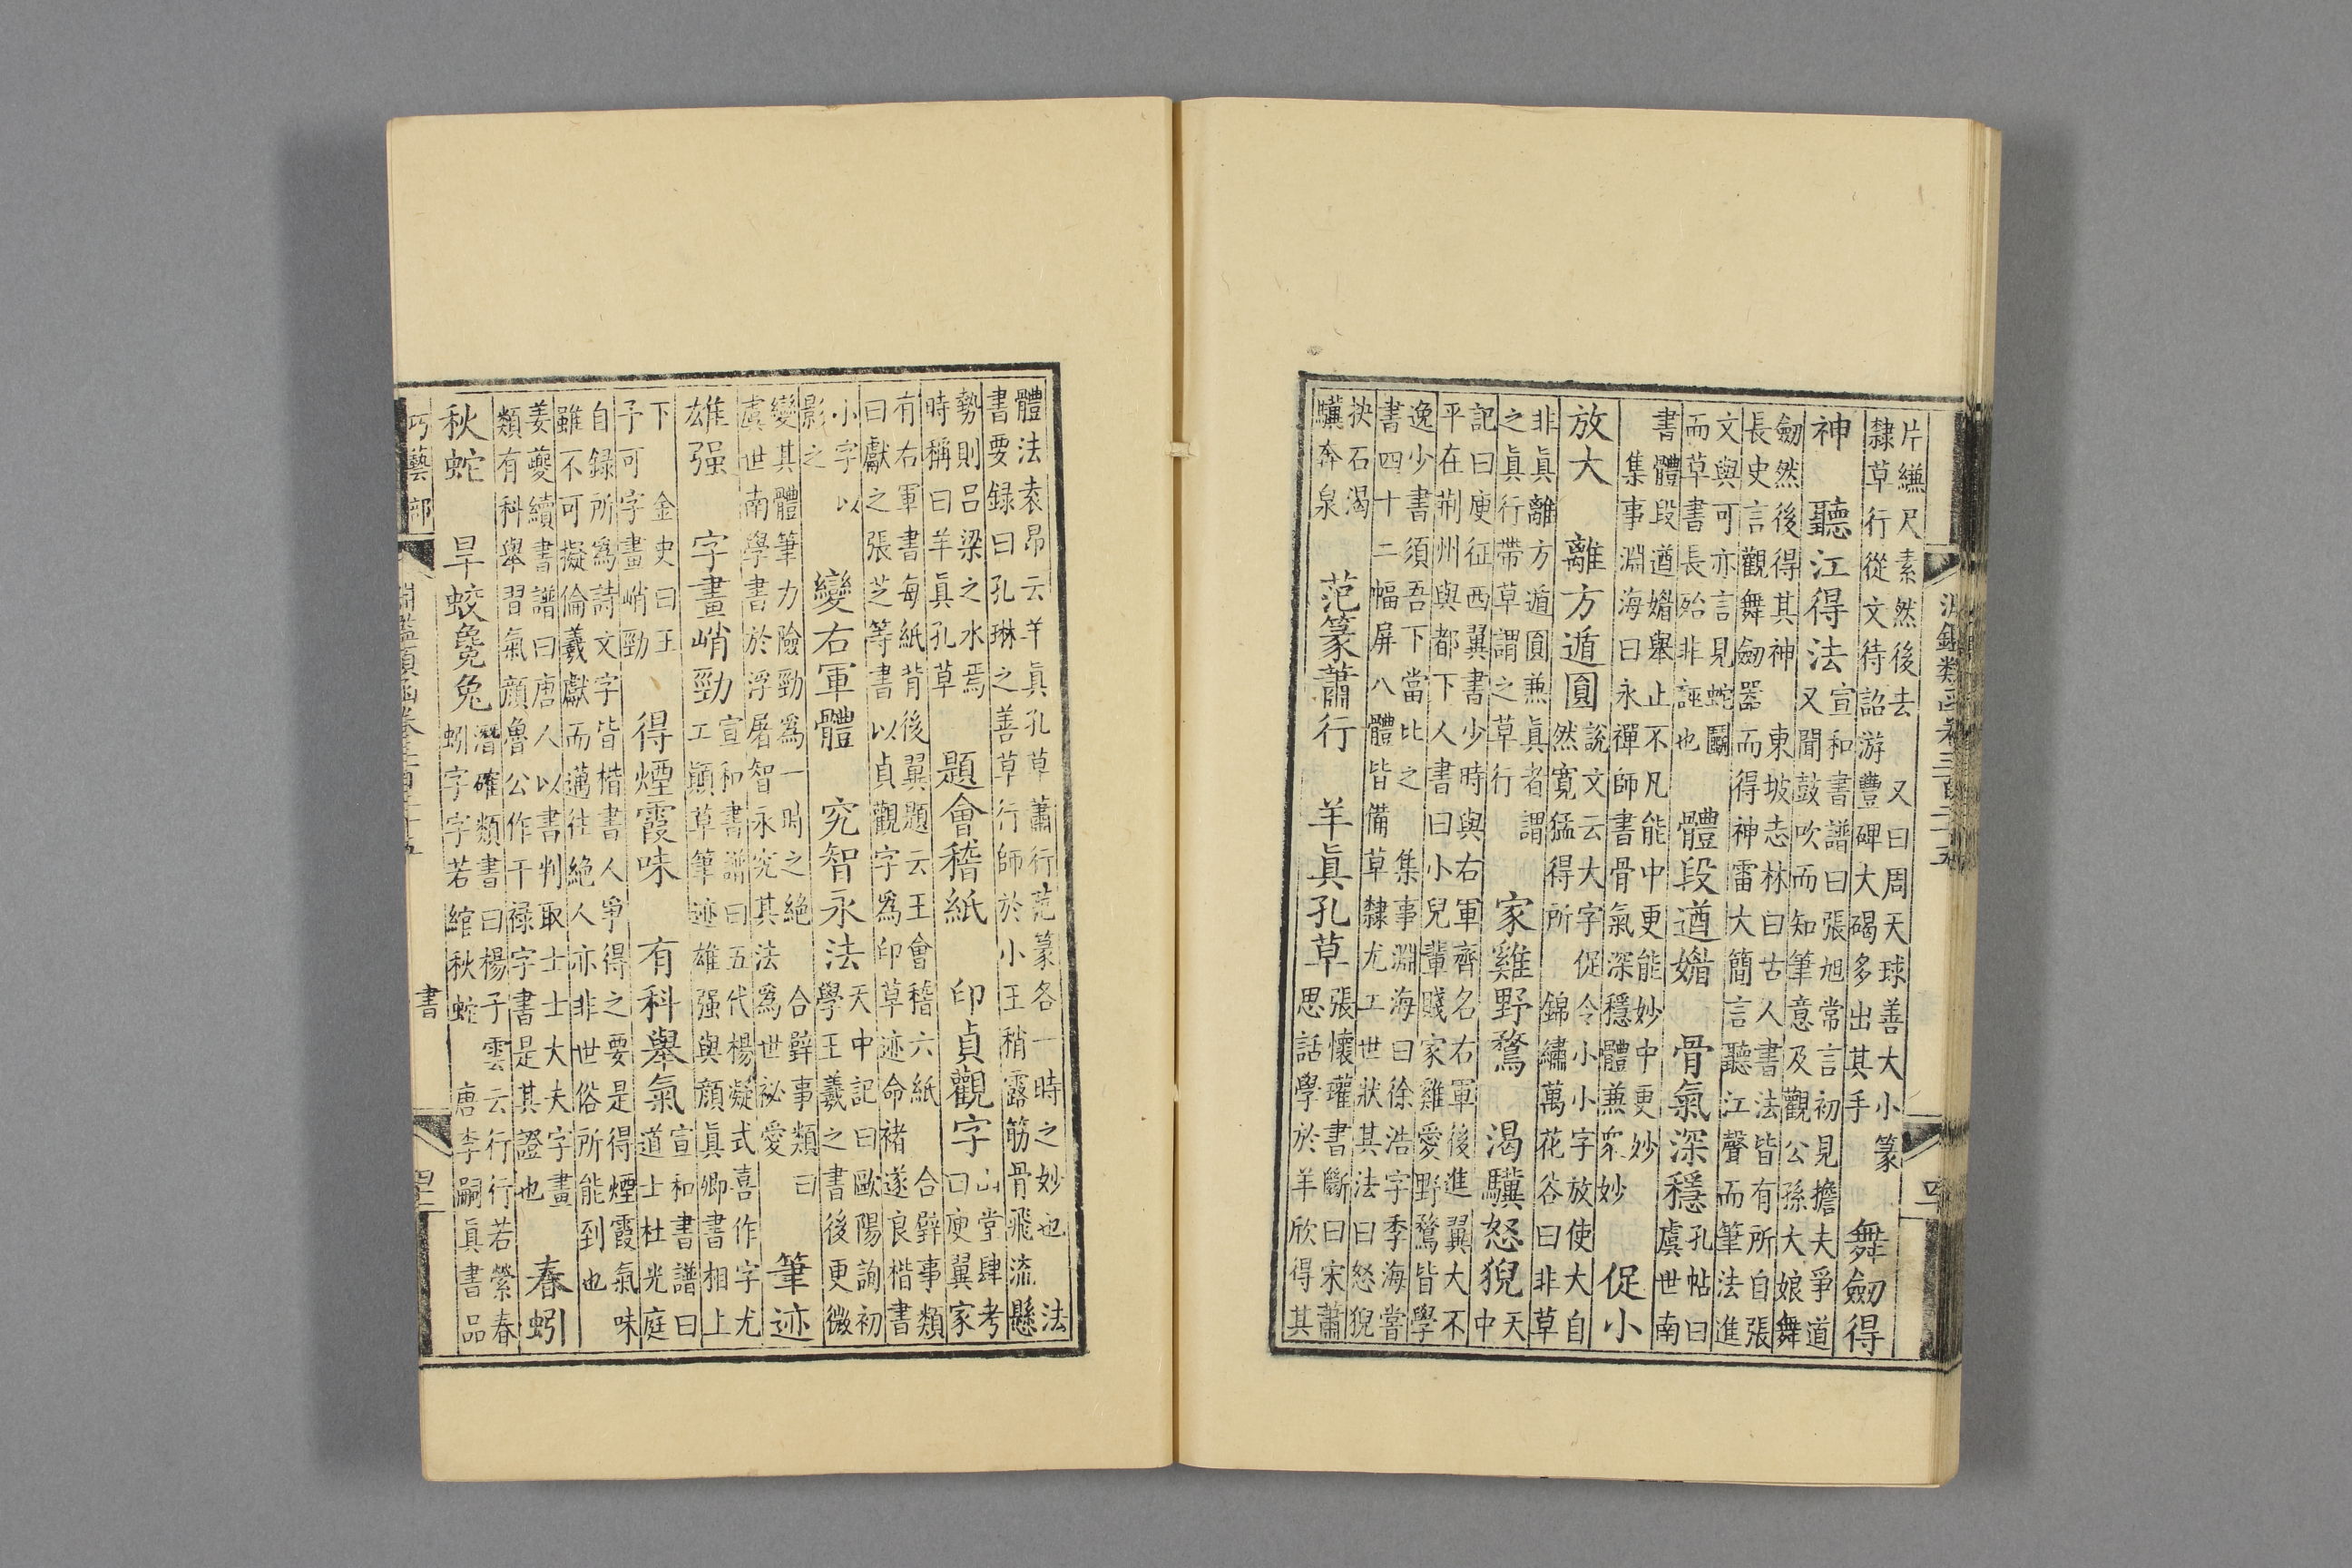 淵鑑類函卷三百二十五
片縑尺素然後去 又曰周天球善大小篆
隸草行從文待詔游豐碑大碣多出其手 舞劒得
神 聽江得法 宣和書譜曰張旭常言初見擔夫爭道
又聞鼓吹而知筆意及觀公孫大娘舞
劒然後得其神 東坡志林曰古人書法皆有所自張
長史言觀舞劒器而得神雷大簡言聽江聲而筆法進
文與可亦言見蛇鬭
而草書長殆非誣也 體段遒媚 骨氣深穩 孔帖曰
虞世南
書體段遒媚舉止不凡能中更能妙中更妙
集事淵海曰永禪師書骨氣深穩體兼衆妙 促小
放大 離方遁圓 說文云大字促令小小字放使大自
然寬猛得所 錦繡萬花谷曰非草
非眞離方遁圓兼眞者謂
之眞行帶草謂之草行 家雞野鶩 渴驥怒猊 天
中
記曰庾征西翼書少時與右軍齊名右軍後進翼大不
平在荆州與都下人書曰小兒輩賤家雞愛野鶩皆學
逸少書須吾下當比之 集事淵海曰徐浩字季海嘗
書四十二幅屏八體皆備草隸尤工世狀其法曰怒猊
抉石渴
驥奔泉 范篆蕭行 羊眞孔草 張懷瓘書斷曰宋蕭
思話學於羊欣得其
體法袁昂云羊眞孔草蕭行范篆各一時之妙也 法
書要録曰孔琳之善草行師於小王稍露筋骨飛流懸
勢則呂梁之水焉
時稱曰羊眞孔草 題會稽紙 印貞觀字 山堂肆考
曰庾翼家
有右軍書每紙背後翼題云王會稽六紙 合璧事類
曰獻之張芝等書以貞觀字爲印草迹命褚遂良楷書
小字以
影之 變右軍體 究智永法 天中記曰歐陽詢初
學王羲之書後更微
變其體筆力險勁爲一時之絶 合璧事類曰
虞世南學書於浮屠智永究其法爲世祕愛 筆迹
雄强 字畫峭勁 宣和書譜曰五代楊凝式喜作字尤
工顚草筆迹雄强與顔眞卿書相上
下 金史曰王
子可字畫峭勁 得煙霞味 有科舉氣 宣和書譜曰
道士杜光庭
自録所爲詩文字皆楷書人爭得之要是得煙霞氣味
雖不可擬倫羲獻而邁往絶人亦非世俗所能到也
姜夔續書譜曰唐人以書判取士士大夫字畫
類有科舉習氣顔魯公作干禄字書是其證也 春蚓
秋蛇 旱蛟毚兔 潛確類書曰楊子雲云行行若縈春
蚓字字若綰秋蛇 唐李嗣眞書品
巧藝部 淵鑑類函卷三百二十五 書